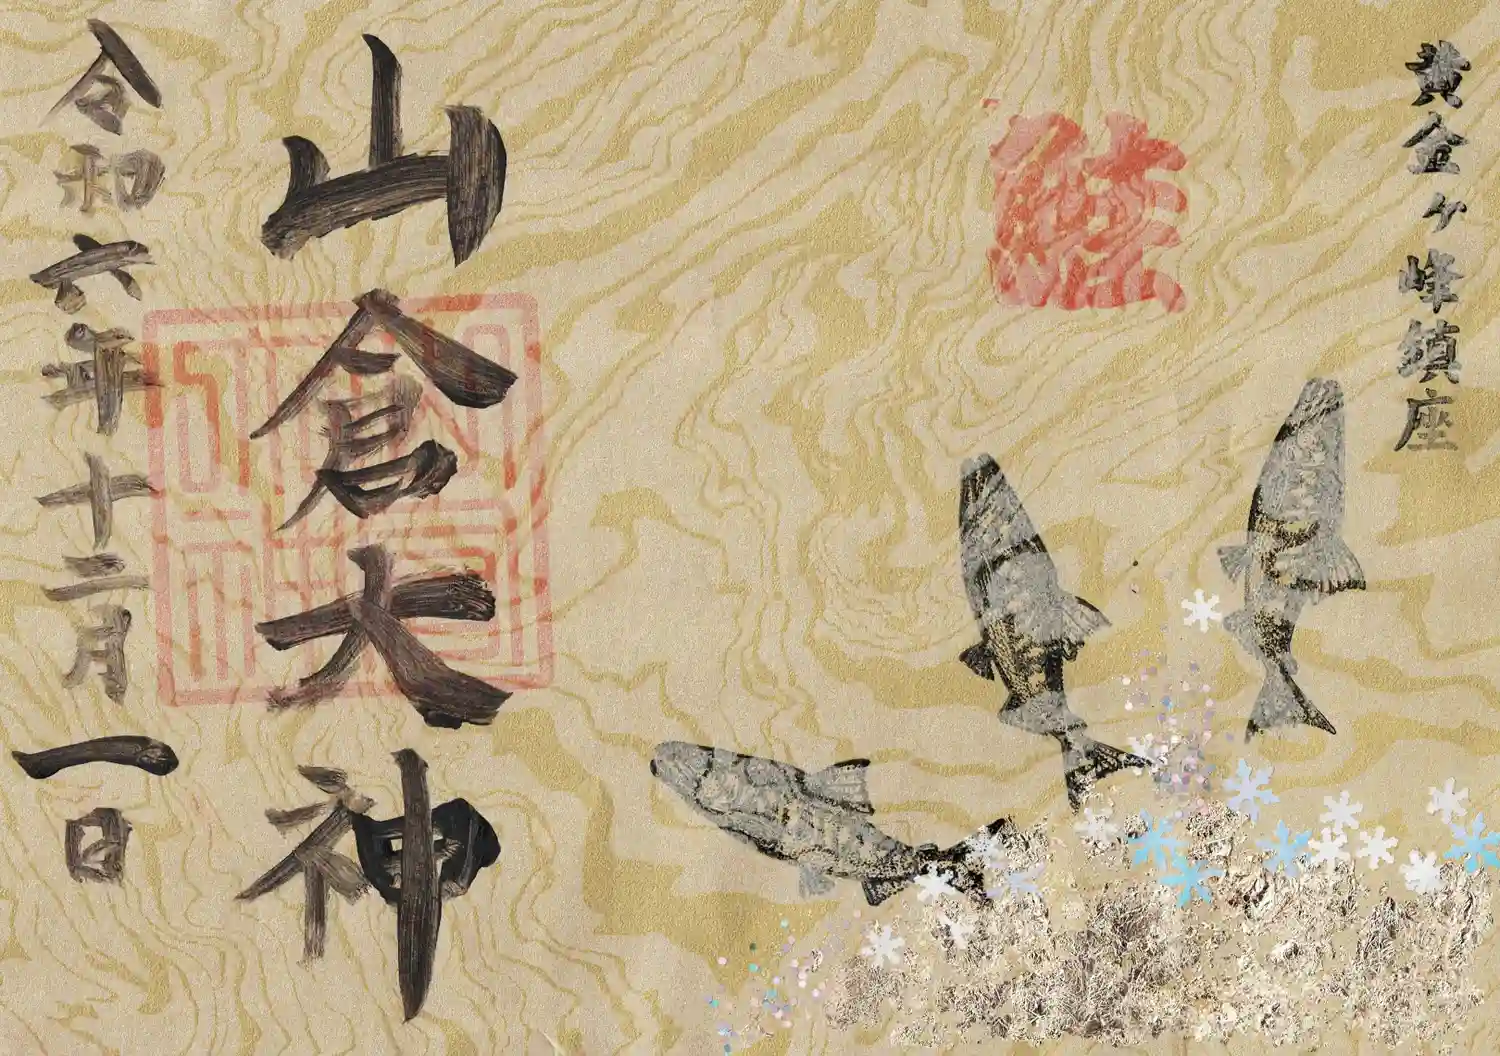 黄金ヶ峰鎮座
鮭
山倉大神
令和六年十二月一日